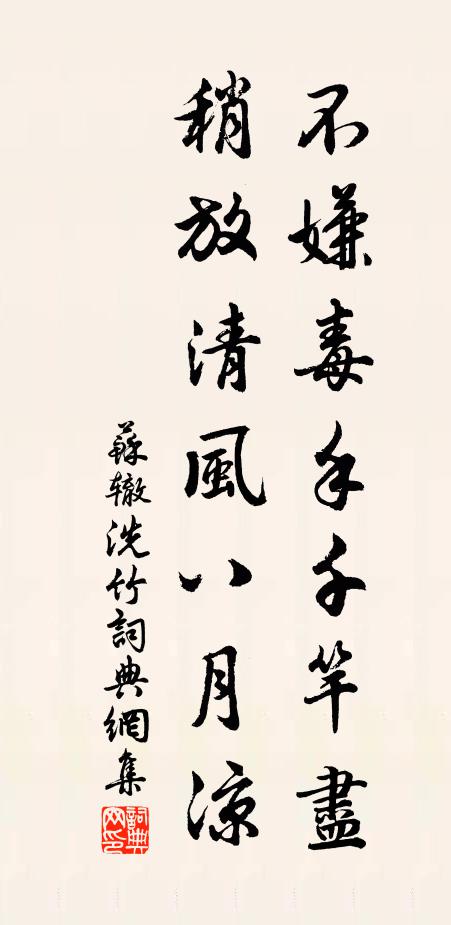 不嫌毒手千竿盡
稍放清風八月涼
蘇辙洗竹詞典網集
詞典网印